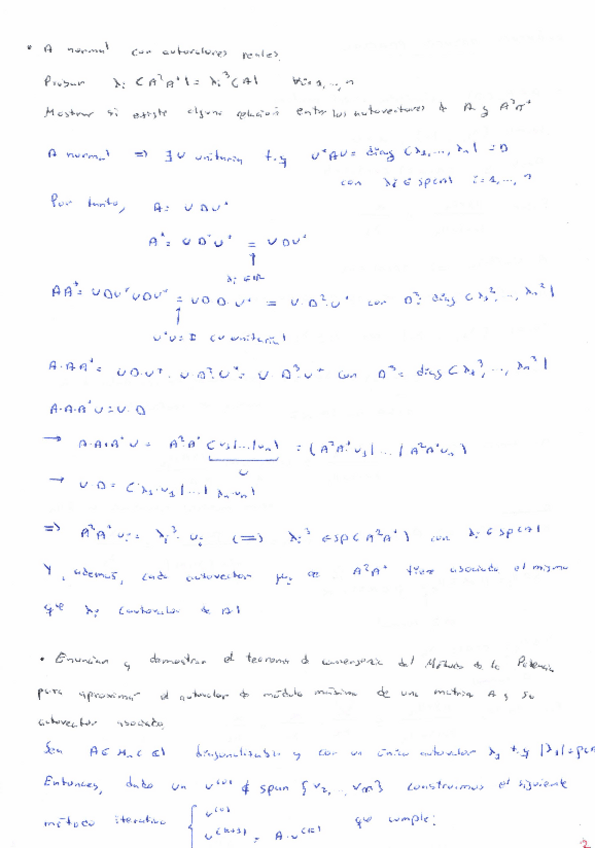 • A normal con autovalores reales.
Probar λi (A²A*) = λi³(A) ∀i=1,…,n
Mostrar si existe alguna relación entre los autovectores de A y A²A*
A normal => ∃U unitaria t.q U*AU = diag (λ1,…,λn) = D
con λi ∈ sp(A) i=1,…,n
Por tanto, A = UDU*
A* = UD*U* = UDU*
λi ∈ ℝ
AA* = UDU*UDU* = UDD·U* = U·D²·U* con D² = diag (λ1²,…,λn²)
U*U = I (U unitaria)
A·AA* = UD·U*·U·D²·U* = U·D³·U* con D³ = diag (λ1³,…,λn³)
A·A·A*U = U·D
→ A·A·A*U = A²A* (v1|…|vn) = (A²A*v1|…|A²A*vn)
U
→ UD = (λ1·v1|…|λn·vn)
=> A²A*vi = λi³·vi (=>) λi³ ∈ sp(A²A*) con λi ∈ sp(A)
Y, además, cada autovector de A²A* tiene asociado el mismo
que λi (autovalor de A)
• Enunciar y demostrar el teorema de convergencia del Método de la Potencia
para aproximar el autovalor de módulo máximo de una matriz A y su
autovector asociado.
Sea A ∈ Mn(ℂ) diagonalizable y con un único autovalor λ1 t.q |λ1|=
Entonces, dado un v⁽⁰⁾ ∉ span {v2,…,vn} construimos el siguiente
método iterativo { v⁽⁰⁾
v⁽ᵏ⁺¹⁾ = A·v⁽ᵏ⁾ que cumple:
2